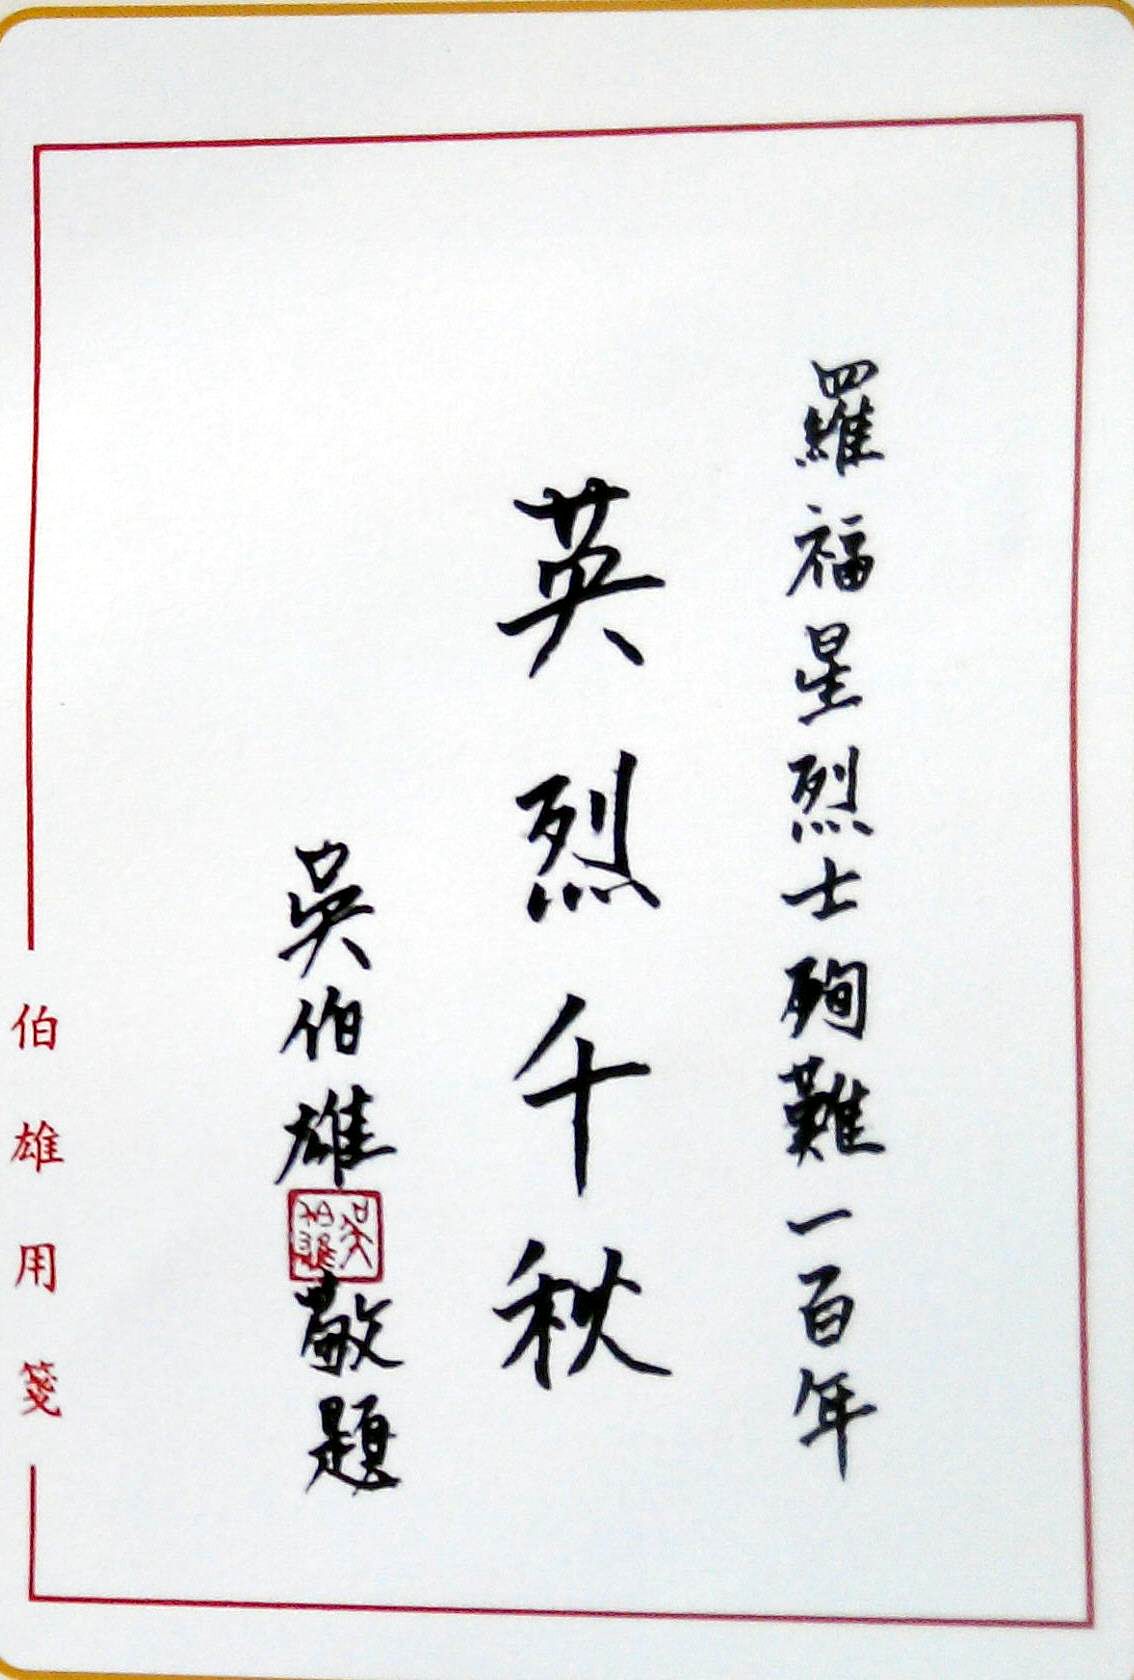 羅福星烈士殉難一百年
英烈千秋
吳伯雄敬題
吳伯雄
伯雄用箋